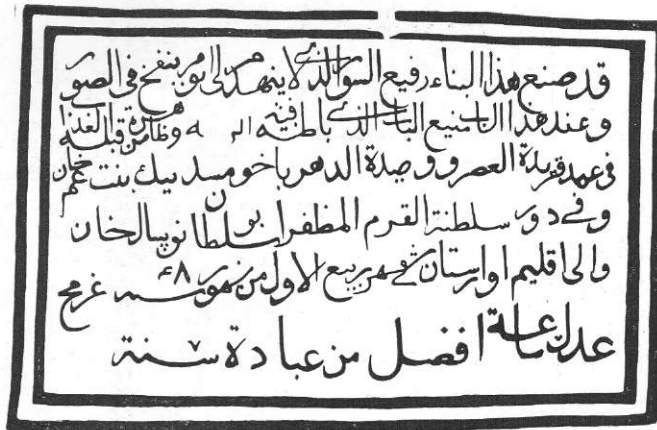 قد صنع هذا البناء رفيع السور الذى لا ينهدم الى يوم ينفخ فى الصور
وعند هذا الباب منيع الباب الذى باطنه فيه وظاهره من قبله العذاب
فى عهد فريدة العصر و وحيدة الدهر باخو مسد بيك بنت
وفى دور سلطنة القرم المظفر ابو سلطان نوسالخان
والى اقليم اوارستان فى شهر ربيع الاول من شهور سنه
عدل ساعة افضل من عبادة سنة